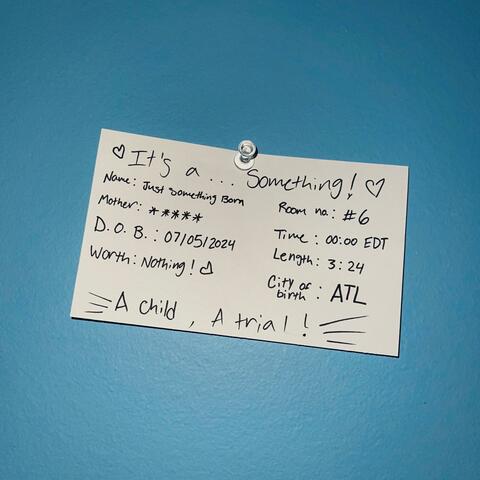 ♡ It's a ... Something! ♡
Name: Just Something Born
Mother: *****
D.O.B.: 07/05/2024
Worth: Nothing! ♡
Room no.: #6
Time: 00:00 EDT
Length: 3:24
City of birth: ATL
A child, A trial!